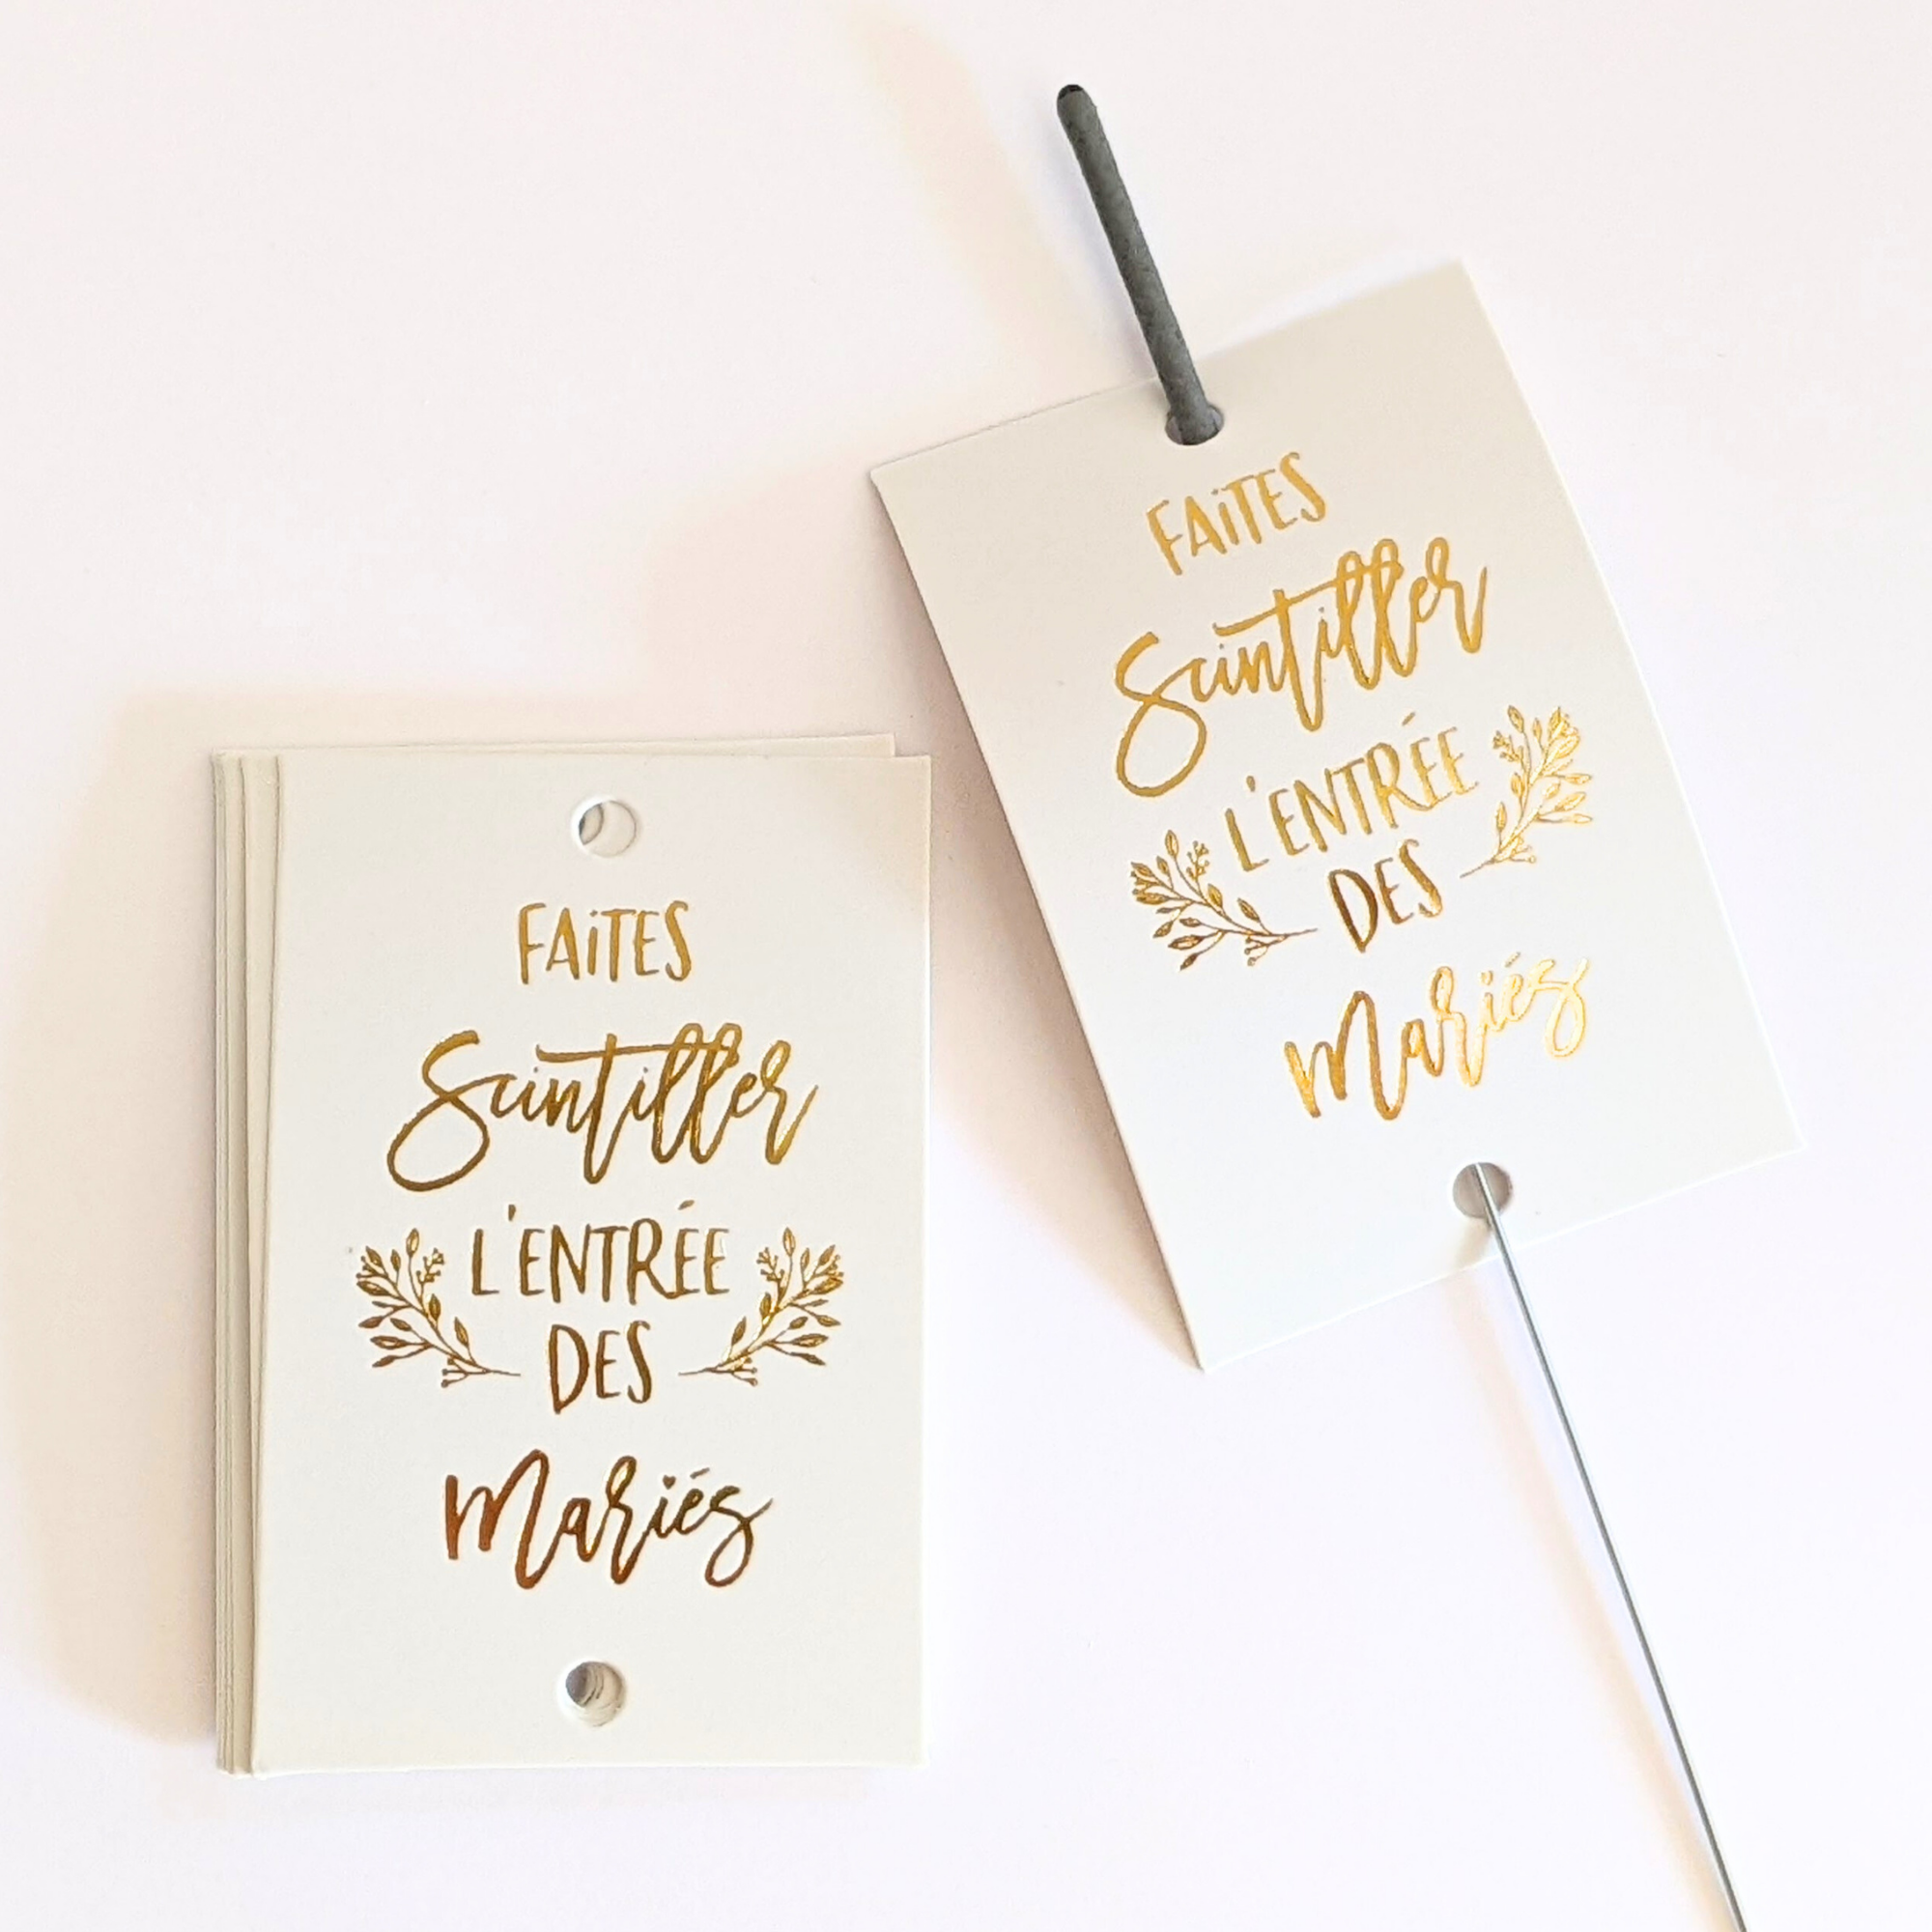 FAiTES
Scintiller
L'ENTRÉE
DES
Mariés
FAiTES
Scintiller
L'ENTRÉE
DES
Mariés